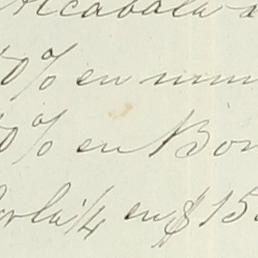 Alcabala
0% en num
0% en Bon
en $15